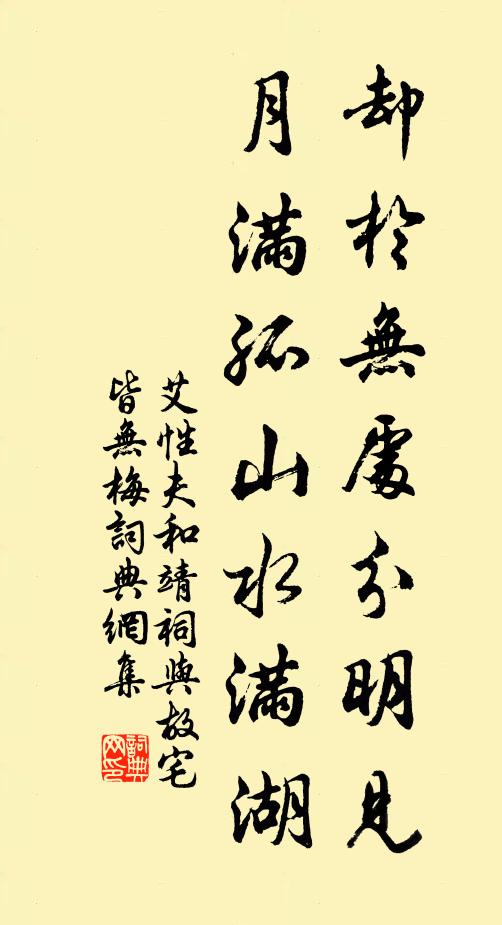 却於無處分明見
月滿孤山水滿湖
艾性夫和靖祠與故宅
皆無梅詞典網集
詞典網印